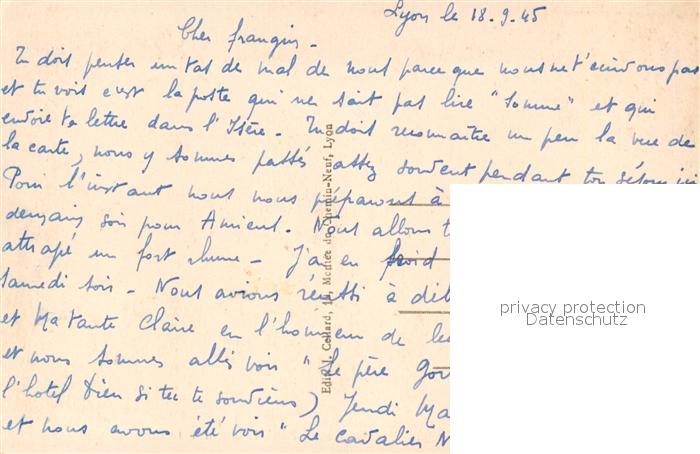 Lyon le 18.9.45
Cher frangin -
Tu doit penser un tas de mal de nous parce que nous ne t'écrivons pas
et tu vois c'est la poste qui ne sait pas lire "Somme" et qui
envoie ta lettre dans l'Isère. Tu doit reconnaître un peu la vue de
la carte, nous y sommes passés assez souvent pendant ton séjour ici
Pour l'instant nous nous préparont à
demain soir pour Amiens. Nous allons t
attrapé un fort rhume - J'ai eu froid
samedi soir - Nous avions réussi à dé
et Ma tante Claire en l'honneur de le
et nous sommes allés voir "Le père Gor
l'hotel Dieu si tu te souviens) Jeudi Ma
et nous avons été voir "Le cavalier N
Edit. J. Cellard, 14, Montée du Chemin-Neuf, Lyon
privacy protection
Datenschutz